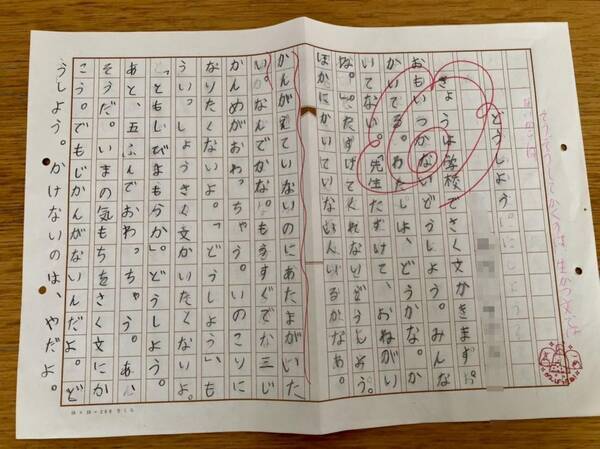 どうしよう。
きょうは学校でさく文かきます。
おもいつかないどうしよう。みんな
かいてる。わたしは、どうかな。か
いてない。「先生たすけて、おねがい
ね。」たすけてくれないどうしよう。
ほかにかいていない人いるかなあ。
かんがえていないのにあたまがいた
い。なんでかな。もうすぐで三じ
かんめがおわっちゃう。いのこりに
なりたくないよ。「どうしよう」も
ういっしょうさく文かいたくないよ。
どうしよう。
あと、五ふんでおわっちゃう。あ、
そうだ。いまの気もちをさく文にか
こう。でもじかんがないんだよ。ど
うしよう。かけないのは、やだよ。